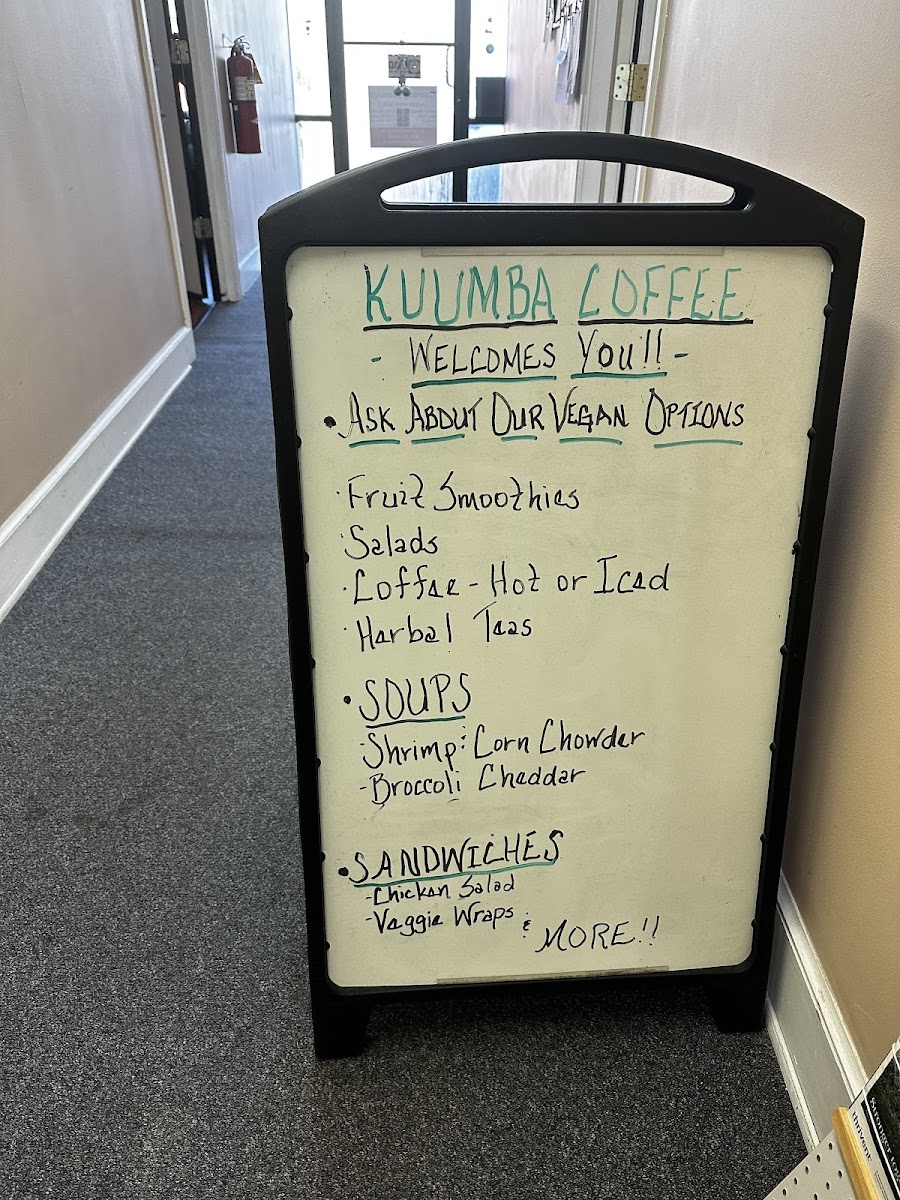 KUUMBA COFFEE
- WELCOMES YOU!! -
• ASK ABOUT OUR VEGAN OPTIONS
· Fruit Smoothies
· Salads
· Coffee - Hot or Iced
· Herbal Teas
• SOUPS
- Shrimp & Corn Chowder
- Broccoli Cheddar
• SANDWICHES
- Chicken Salad
- Veggie Wraps &
MORE!!
thrivent
Stronger